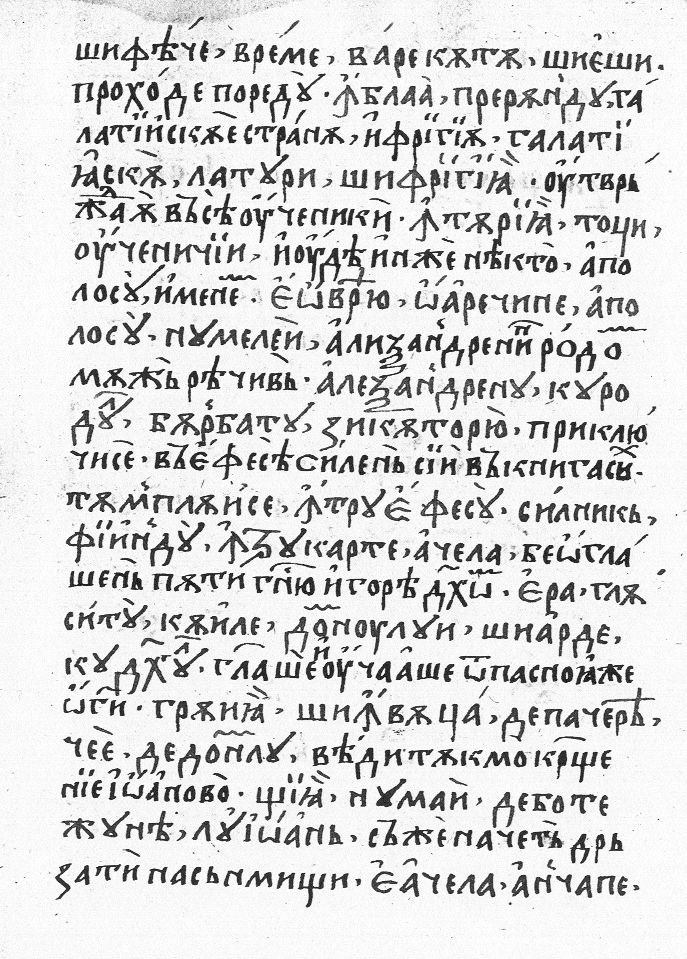 шифѣ́че, врéме, вáре кѫтѫ, шиє́ши.
прохо́де поредꙋ̀. ꙟ҆блаа̀, прерѫндꙋ, га́
латїи́сїѫ̀е стра́нѫ, и҆ фрїгїѫ. галатї
ꙗ҆скѫ̀, латꙋри, шифрїгїꙗ̀. ᲂу҆тврь
жⷣаѧ въсѣ ᲂу҆ченикѝ. ꙟ҆тѫрїꙗ̀, тоци,
ᲂу҆ченичїи, и҆ᲂу҆дѣ́инже нѣктò, а҆по
лосꙋ̀, и҆мене҃. є҆ѡ҆врⷺю, ѡ҆а́речине, а҆по
лосꙋ̀. нꙋмелеѝ, а҆лиѯа́ндренинⷩ҇ ро́до҃
мѫжь рѣчивъ. а҆леѯа́ндренꙋ, кꙋро
дꙋ́ⷧ, бѫрбатꙋ, зикѫторю̀, приклю́
чисѐ. въє҆фесѣ си́лень сїи въкнигасыⷯ.
тѫмплѫи́се, ꙟ҆трꙋ є҆фесꙋ̀. си́лникь,
фїи́ндꙋ̀, ꙟ҆ꙃꙋкарте, а҆чела, беѡ҆гла́
шень пѫти гн҃ю и҆горѣ дх҃ѡⷨ. є҆ра, глѫ
си́тꙋ̀, кѫи́ле, до҃нᲂулꙋи, шиа́рде,
кꙋ дх҃ꙋⷧ. гл҃аше и҆ ᲂу҆чааше ѿпасноꙗ҆же
ѡ҆гⷭ҇и. грѫиꙗ̀, шиꙟ҆вѫца́, депачерѣ̀,
чеѐ, де до҃нлꙋ, вѣ́дитѫкмо крⷭ҇ще
нїе і҆ѡа́ново̀. щїꙗ̀, нꙋмаѝ, деботе
жꙋнѣ̀, лꙋи і҆ѡа́нь. съже начетъ дрь
зати насьнмищи. є҆а҆чела, а҆нчапе.